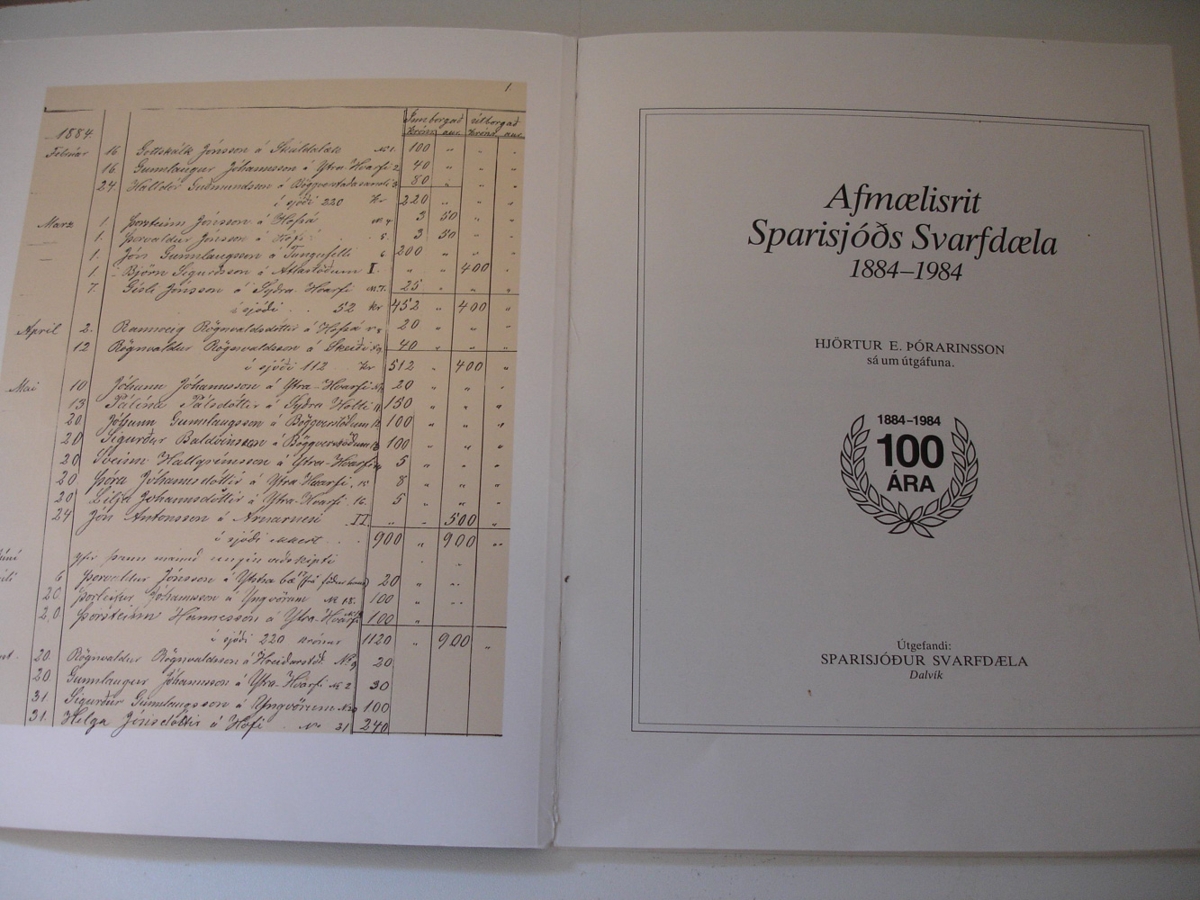 1
Innborgað útborgað
1884. krónur aur krónur aur
Febrúar 16 Gottskálk Jónsson á No 1 100 " " "
16. Gunnlaugur Jóhannsson á Ytra-Hvarfi 2 40 " " "
24. Halldór Guðmundsson á 3 80 " " "
í sjóði 220 kr 220 " " "
Marz 1. Þorsteinn Jónsson á Hofsá 3 50 " "
1. Þorvaldur Jónsson á Hofi 5. 3 50 " "
1. Jón Gunnlaugsson á Tungufelli 6 200 " " "
1. Björn Sigurðsson á Atlastöðum I. " " 400 "
7. Gísli Jónsson á Syðra Hvarfi No 7. 25 " " "
í sjóði . . 52 kr 452 " 400 "
Apríl 2. Rannveig Rögnvaldsdóttir á Hofsá 20 " " "
12 Rögnvaldur Rögnvaldsson á Skeiði 40 " " "
í sjóði 112 kr 512 " 400 "
Mai 10 Jóhann Jóhannsson á Ytra-Hvarfi 20 " " "
13. Pálína Pálsdóttir á Syðra Holti 150 " " "
20 Jóhann Gunnlaugsson á Böggverstöðum 100 " " "
20 Sigurður Baldvinsson á Böggverstöðum 100 " " "
20 Sveinn Hallgrímsson á Ytra-Hvarfi 5 " " "
20 Þóra Jóhannsdóttir á Ytra Hvarfi. 8 " " "
20 Lilja Jóhannsdóttir á Ytra-Hvarfi 16. 5 " " "
24 Jón Antonsson á Arnarnesi II. " " 500 "
í sjóði ekkert . . 900 " 900 "
Yfir þenn mánuð engin viðskipti
6 Þorvaldur Jónsson á 20 " " "
20 Þorleifur Jóhannsson á Yngvörum No 18. 100 " " "
20 Þorsteinn Hannesson á Ytra-Hvarfi 100 "
í sjóði 220 krónur 1120 " 900 "
20. Rögnvaldur Rögnvaldsson á 20
20 Gunnlaugur Jóhannsson á Ytra-Hvarfi No 2 30
31. Sigurður Gunnlaugsson á Yngvörum 100
31. Helga Jónsdóttir á Hofi No 21 240
Afmælisrit
Sparisjóðs Svarfdæla
1884–1984
HJÖRTUR E. ÞÓRARINSSON
sá um útgáfuna.
1884–1984
100
ÁRA
Útgefandi:
SPARISJÓÐUR SVARFDÆLA
Dalvík